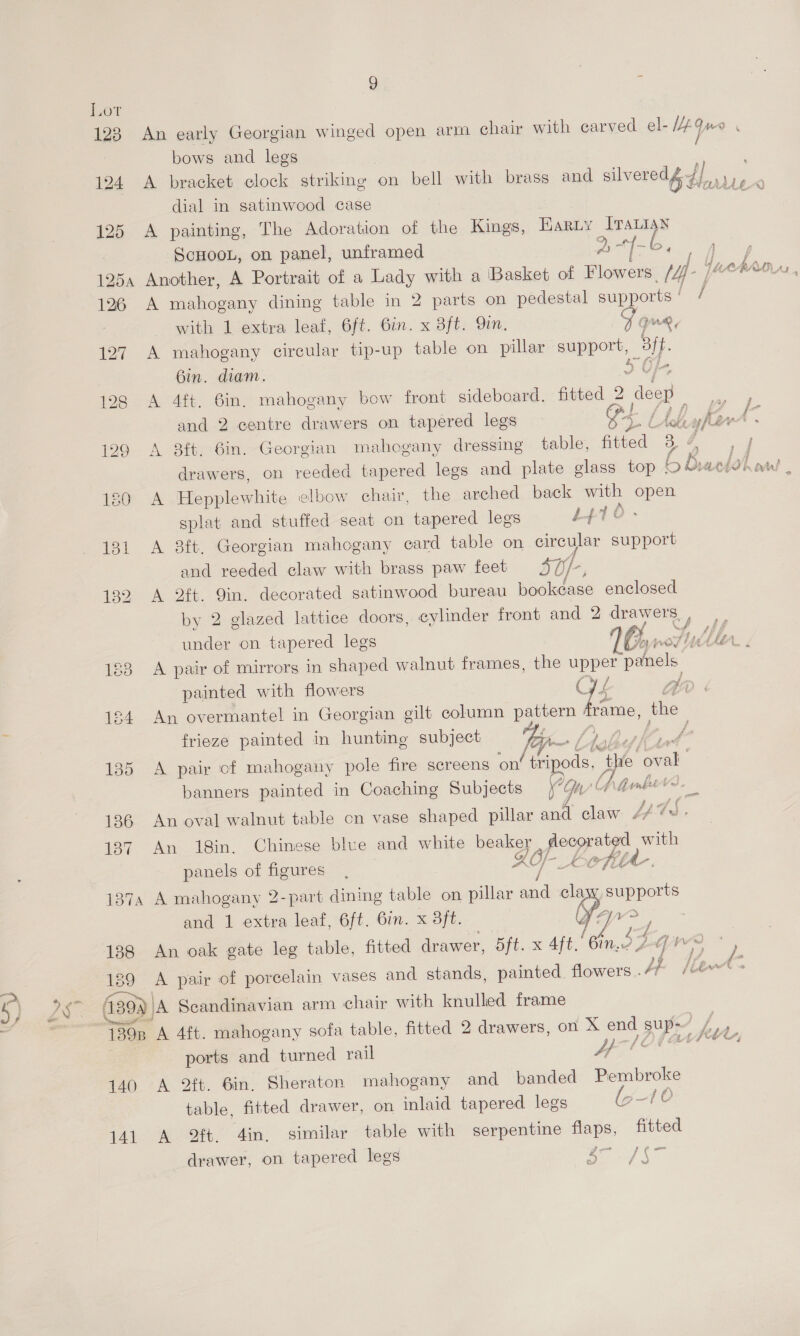 9
Lot
123 An early Georgian winged open arm chair with carved el-
bows and legs
124 A bracket clock striking on bell with brass and silvered
dial in satinwood case
125 A painting, The Adoration of the Kings, Early Italian
School, on panel, unframed
125A Another, A Portrait of a Lady with a Basket of Flowers
126 A mahogany dining table in 2 parts on pedestal supports
with 1 extra leaf, 6ft. 6in. x 3ft. 9in.
127 A mahogany circular tip-up table on pillar support, 3ft.
6in. diam. 50/-
128 A 4ft. 6in. mahogany bow front sideboard, fitted 2 deep
and 2 centre drawers on tapered legs
129 A 3ft. 6in. Georgian mahogany dressing table, fitted 3
drawers, on reeded tapered legs and plate glass top
130 A Hepplewhite elbow chair, the arched back with open
splat and stuffed seat on tapered legs
131 A 3ft. Georgian mahogany card table on circular support
and reeded claw with brass paw feet 50/-
132 A 2ft. 9in. decorated satinwood bureau bookcase enclosed
by 2 glazed lattice doors, cylinder front and 2 drawers
under on tapered legs
133 A pair of mirrors in shaped walnut frames, the upper panels
painted with flowers
134 An overmantel in Georgian gilt column pattern frame, the
frieze painted in hunting subject
135 A pair of mahogany pole fire screens on tripods, the oval
banners painted in Coaching Subjects
136 An oval walnut table on vase shaped pillar and claw
137 An 18in. Chinese blue and white beaker decorated with
panels of figures
137A A mahogany 2-part dining table on pillar and claw supports
and 1 extra leaf, 6ft. 6in. x 3ft.
138 An oak gate leg table, fitted drawer, 5ft. x 4ft. 6in.
139 A pair of porcelain vases and stands, painted flowers
139A A Scandinavian arm chair with knulled frame
139B A 4ft. mahogany sofa table, fitted 2 drawers, on X end sup-
ports and turned rail
140 A 2ft. 6in. Sheraton mahogany and banded Pembroke
table, fitted drawer, on inlaid tapered legs 6-10
141 A 2ft. 4in. similar table with serpentine flaps, fitted
drawer, on tapered legs